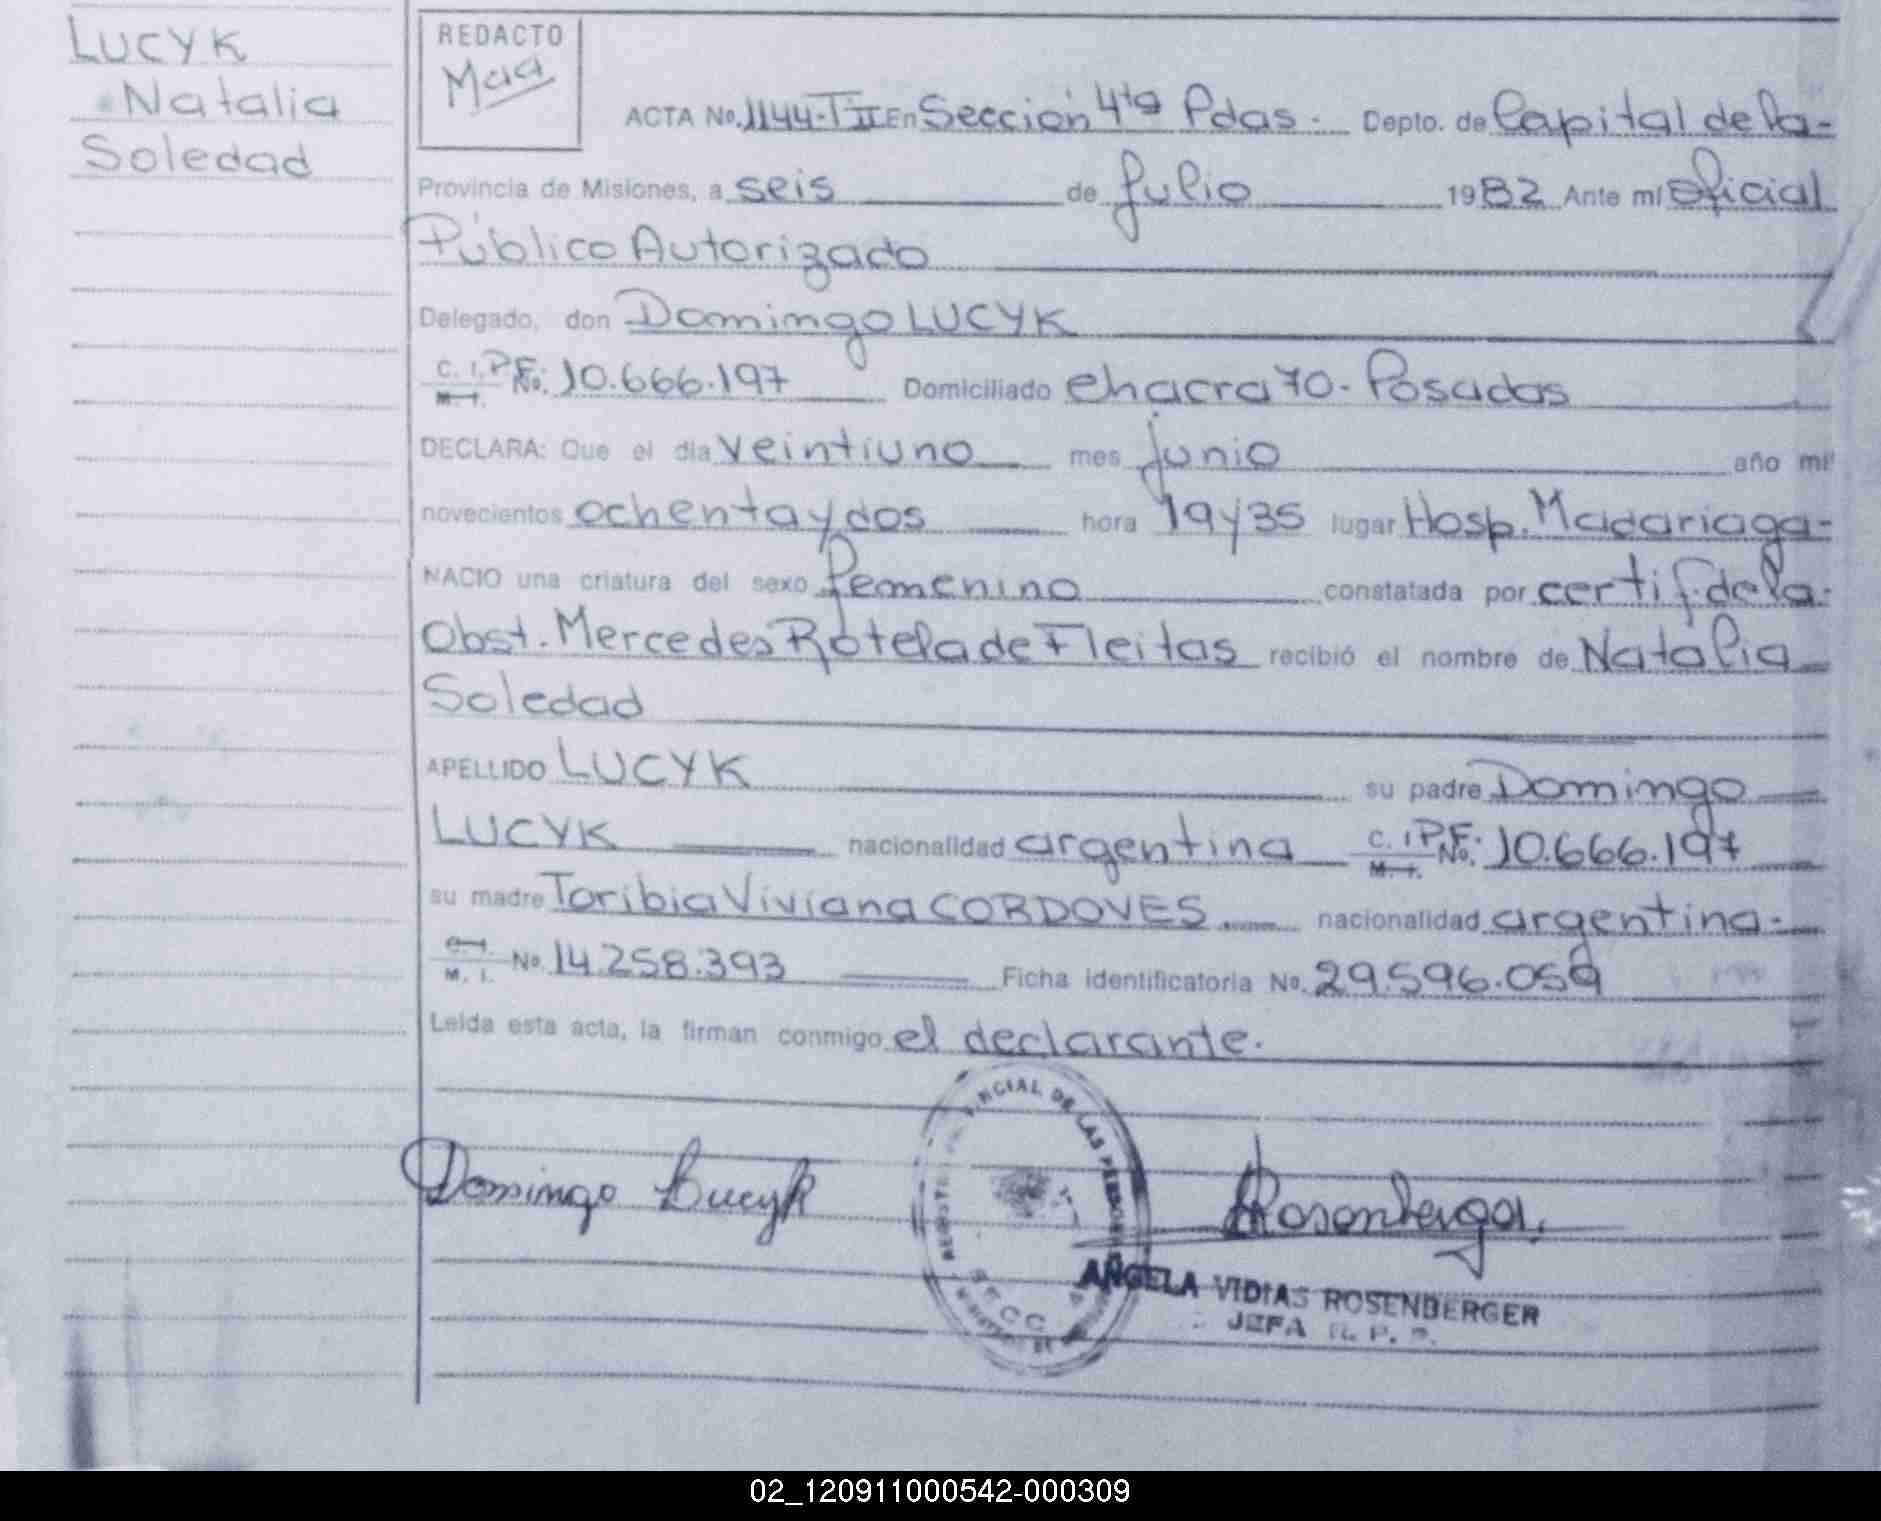 LUCYK
Natalia
Soledad
REDACTO
Maa
ACTA No. 1144-T II En Sección 4ta Pdas. Depto. de Capital de la-
Provincia de Misiones, a seis de Julio 1982 Ante mi Oficial
Público Autorizado
Delegado, don Domingo LUCYK
C. I. P.F. M. I. No. 10.666.197 Domiciliado chacra 70- Posadas
DECLARA: Que el dia veintiuno mes junio año mil
novecientos ochenta y dos hora 19 y 35 lugar Hosp. Madariaga-
NACIO una criatura del sexo femenino constatada por certif. de la-
Obst. Mercedes Rotela de Fleitas recibió el nombre de Natalia
Soledad
APELLIDO LUCYK su padre Domingo
LUCYK nacionalidad argentina C. I. P.F. M. I. No. 10.666.197
su madre Toribia Viviana CORDOVES nacionalidad argentina-
C. I. M. I. No. 14.258.393 Ficha identificatoria No. 29.596.059
Leida esta acta, la firman conmigo el declarante.
Domingo Lucyk
Rosenberger
DE LAS PERSONAS
SECC
ANGELA VIDIAS ROSENBERGER
JEFA R. P. P.
02_120911000542-000309